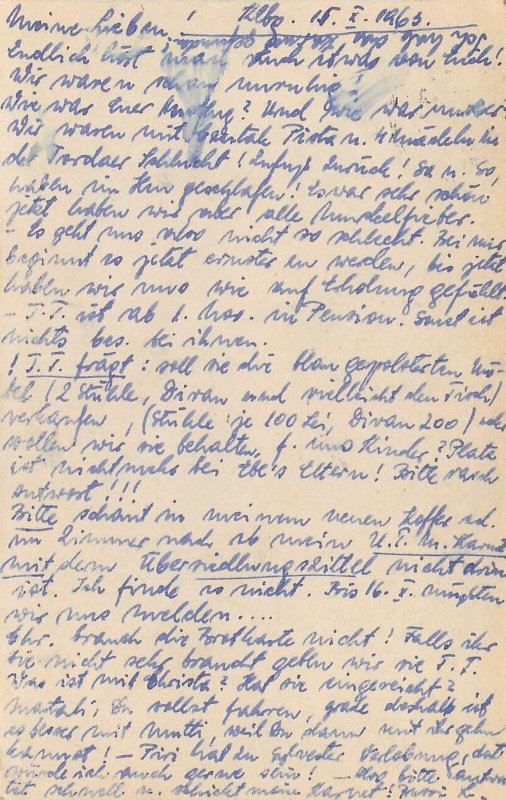 Meine Lieben! Klbg. 15. X. 1963.
Endlich hört man auch etwas von Euch!
Wir waren schon unruhig!
Wie war Euer Ausflug? Und wie war unser
Wir waren mit Pista u. 4 Mädeln in
der Tordaer Schlucht! Zu Fuß zurück! Sa u. So,
haben im Heu geschlafen! Es war sehr schön
jetzt haben wir aber alle Muskelfieber.
- Es geht uns also nicht so schlecht. Bei mir
beginnt es jetzt ernster zu werden, bis jetzt
haben wir uns wie auf Erholung gefühlt.
- T.T. ist ab 1. Nov. in Pension. Sonst ist
nichts bes. bei ihnen.
! T.T. frägt: soll sie die blau gepolsterten Mö-
bel (2 Stühle, Divan und vielleicht den Tisch)
verkaufen, (Stühle je 100 Lei, Divan 200) oder
wollen wir sie behalten, f. uns Kinder? Platz
ist nicht mehr bei Ebe's Eltern! Bitte rasch
Antwort!!!
Bitte schaut in meinem neuen Koffer od.
im Zimmer nach ob mein U.T.M. Karnet
mit dem Übersiedlungszettel nicht drin
ist. Ich finde es nicht. Bis 16. X. müssten
wir uns melden....
Chr. brauch die Brotkarte nicht! Falls ihr
sie nicht sehr braucht geben wir sie T.T.
Was ist mit Christa? Hat sie eingereicht?
Mutati, Du sollst fahren, grade deshalb ist
es besser mit Mutti, weil Du dann mit ihr gehn
kannst! - Pivi hat zu Sylvester Verlobung, da
würde ich auch gerne sein! - Also bitte antwor-
tet schnell u. schickt mein Karnet!